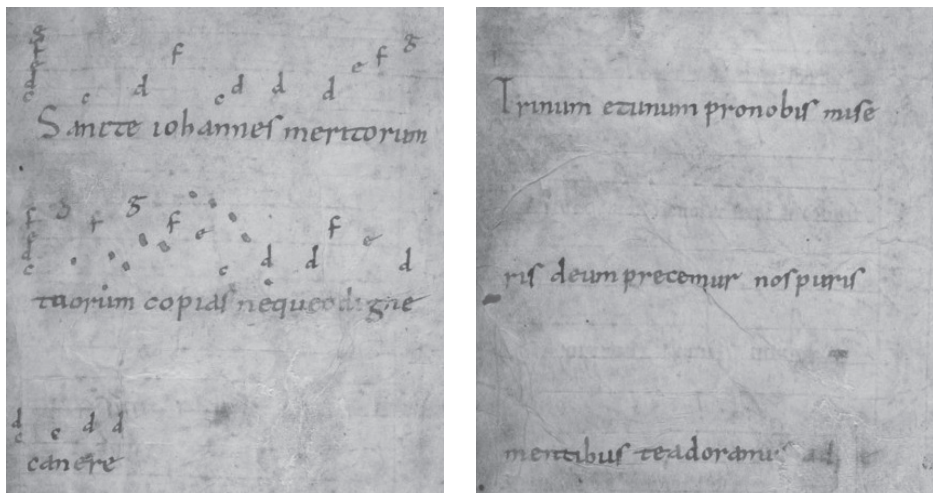 c d f c d d d e f g
Sancte iohannes meritorum
g f g f e c d d f e d
tuorum copias nequeo digne
d c e d d
canere
Trinum etunum pronobis mise
ris deum precemur nos puris
mentibus teadoramus ad